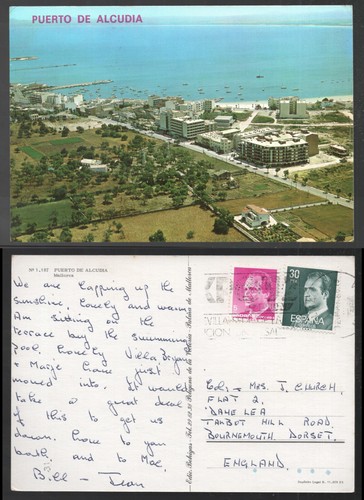 PUERTO DE ALCUDIA
Nº 1.187 PUERTO DE ALCUDIA
Mallorca
We are lapping up the
sunshine, lovely and warm
Am sitting on the
terrace by the swimming
pool, lovely Villa Bryan
& Marje have just
moved into. It would
take a great deal
if this to get us
down. Love to you
both, and to Moe,
Bill - Jean
30
PTA
ESPAÑA
Col. & Mrs. J. CHURCH,
FLAT 2,
'DANE LEA'
TALBOT HILL ROAD,
BOURNEMOUTH. DORSET.
ENGLAND.